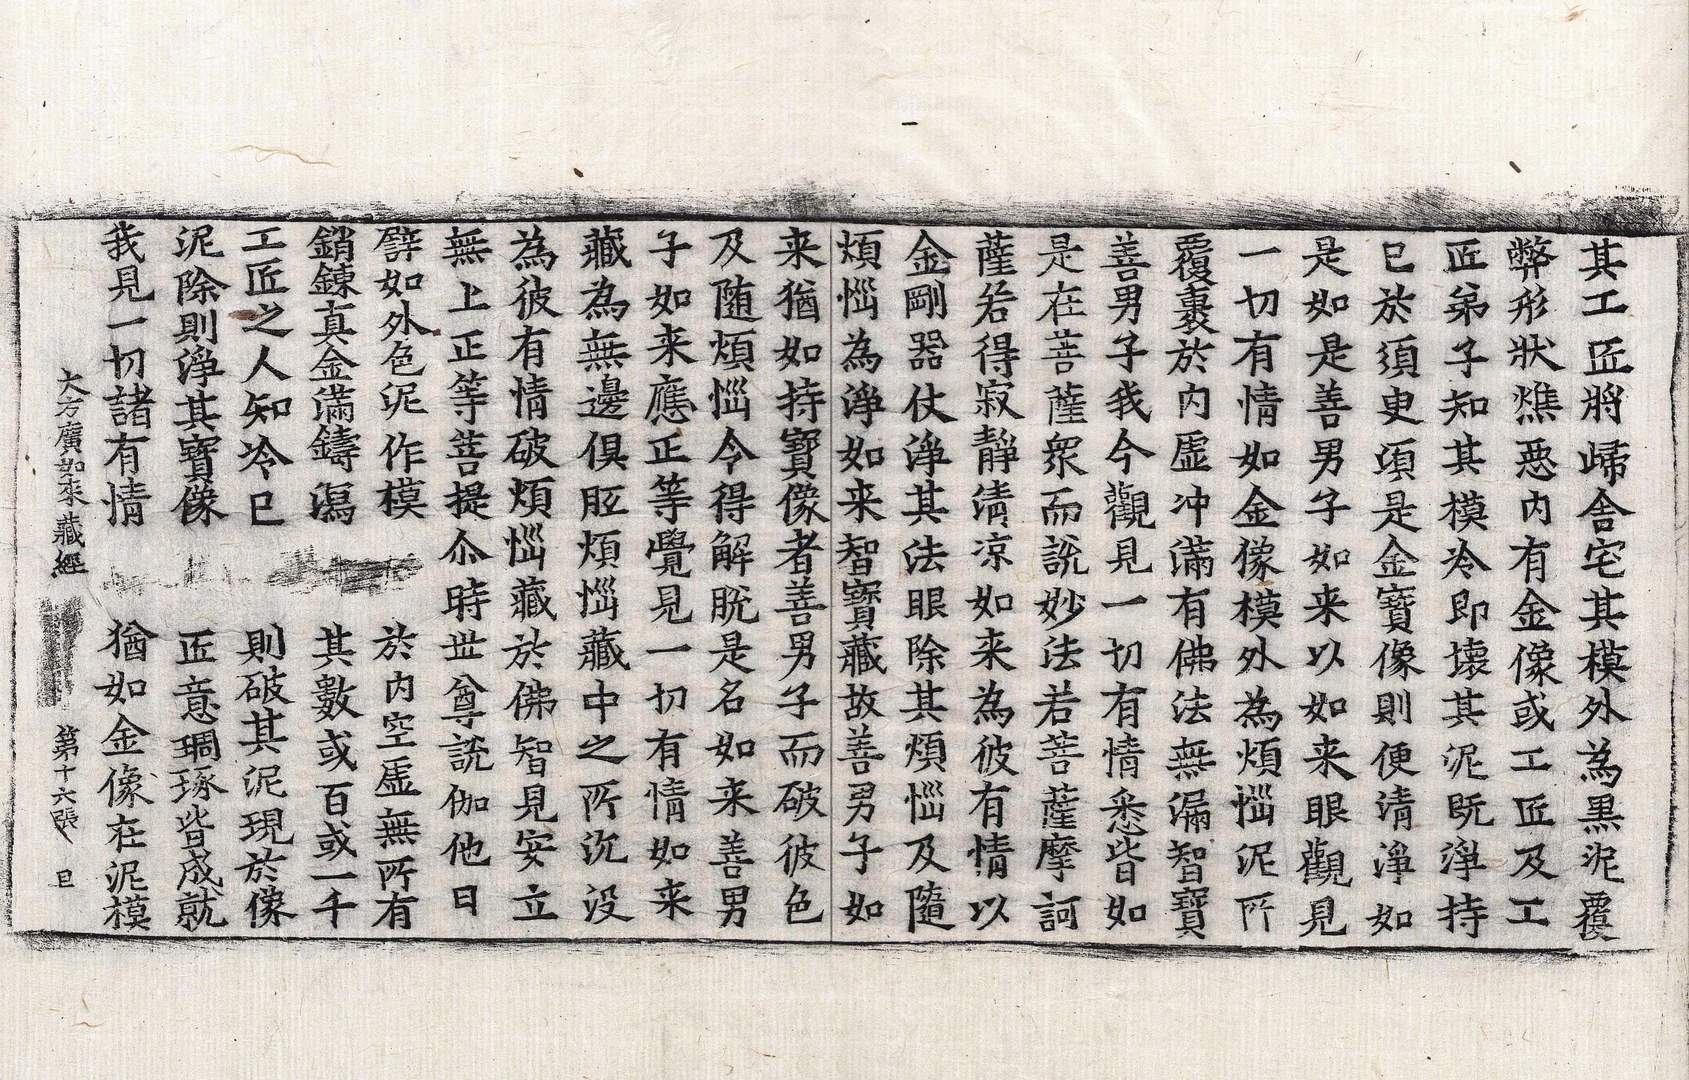 其工匠將歸舍宅其模外為黑泥覆
弊形狀燋惡內有金像或工匠及工
匠弟子知其模冷即壞其泥旣淨持
已於須臾頃是金寶像則便清淨如
是如是善男子如来以如来眼觀見
一切有情如金像模外為煩惱泥所
覆裹於內虛冲滿有佛法無漏智寶
善男子我今觀見一切有情悉皆如
是在菩薩衆而說妙法若菩薩摩訶
薩若得寂靜清凉如来為彼有情以
金剛器仗淨其法眼除其煩惱及隨
煩惱為淨如来智寶藏故善男子如
来猶如持寶像者善男子而破彼色
及随煩惱令得解脫是名如来善男
子如来應正等覺見一切有情如来
藏為無邊俱胝煩惱藏中之所沉没
為彼有情破煩惱藏於佛智見安立
無上正等菩提尒時世尊說伽他曰
譬如外色泥作模 於內空虛無所有
銷鍊真金滿鑄瀉 其數或百或一千
工匠之人知冷已 則破其泥現於像
泥除則淨其寶像 匠意琱琢皆成就
我見一切諸有情 猶如金像在泥模
大方廣如来藏經 第十六張 旦